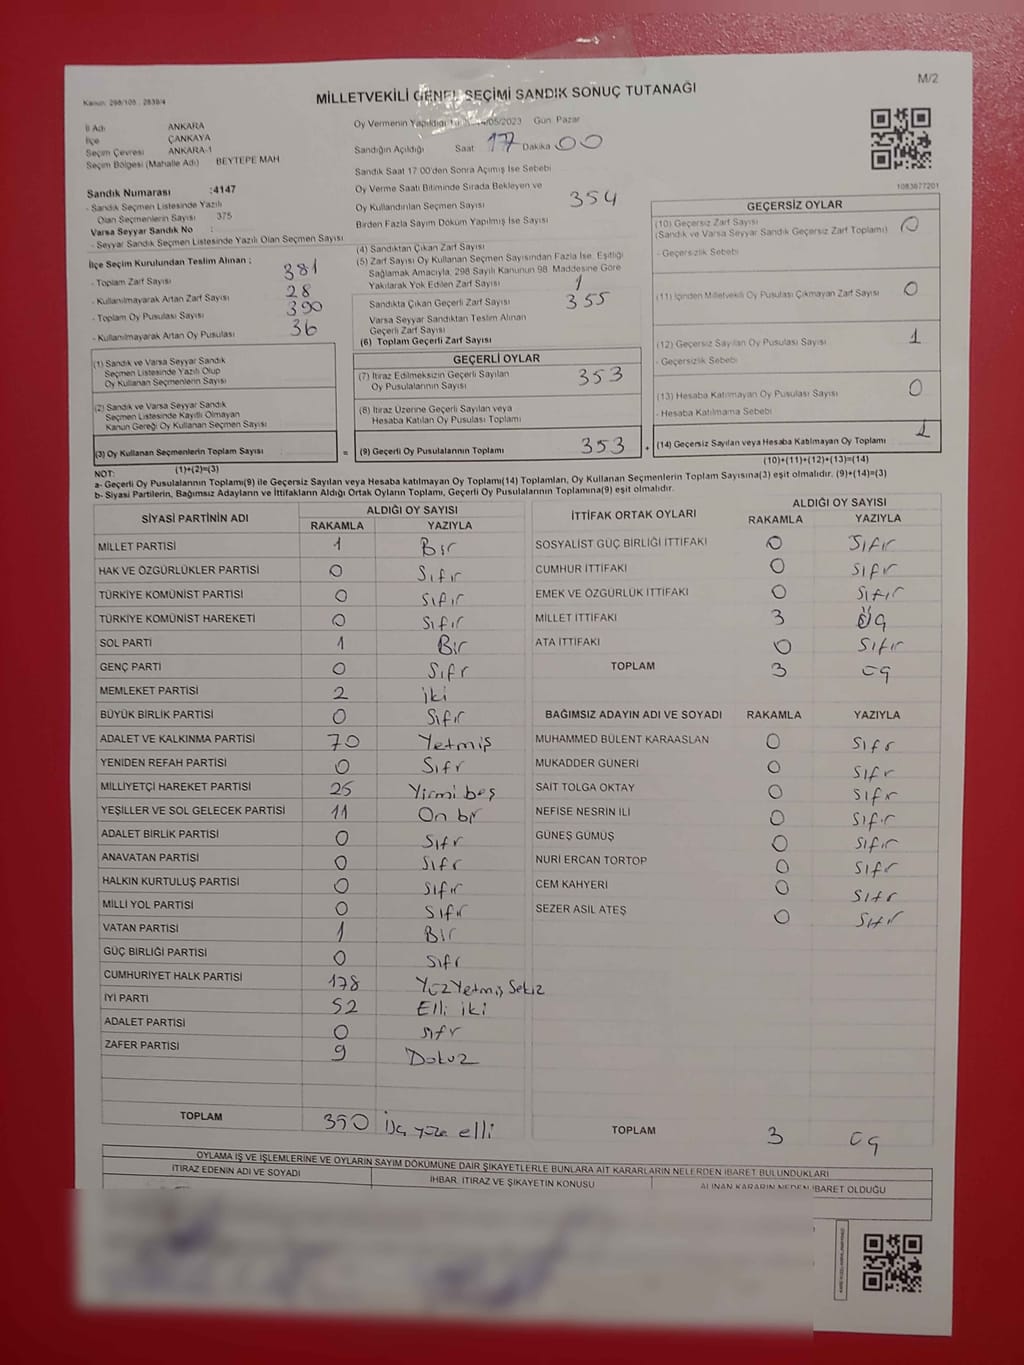 M/2
Kanun: 298/105 , 2839/4
MİLLETVEKİLİ GENEL SEÇİMİ SANDIK SONUÇ TUTANAĞI
İl Adı ANKARA
İlçe ÇANKAYA
Seçim Çevresi ANKARA-1
Seçim Bölgesi (Mahalle Adı) BEYTEPE MAH
Sandık Numarası :4147
- Sandık Seçmen Listesinde Yazılı
Olan Seçmenlerin Sayısı 375
Varsa Seyyar Sandık No :
- Seyyar Sandık Seçmen Listesinde Yazılı Olan Seçmen Sayısı
İlçe Seçim Kurulundan Teslim Alınan ;
- Toplam Zarf Sayısı 381
- Kullanılmayarak Artan Zarf Sayısı 28
- Toplam Oy Pusulası Sayısı 390
- Kullanılmayarak Artan Oy Pusulası 36
(1) Sandık ve Varsa Seyyar Sandık
Seçmen Listesinde Yazılı Olup
Oy Kullanan Seçmenlerin Sayısı
(2) Sandık ve Varsa Seyyar Sandık
Seçmen Listesinde Kayıtlı Olmayan
Kanun Gereği Oy Kullanan Seçmen Sayısı
(3) Oy Kullanan Seçmenlerin Toplam Sayısı
(1)+(2)=(3)
Oy Vermenin Yapıldığı 14/05/2023 Gün: Pazar
Sandığın Açıldığı Saat 17 Dakika 00
Sandık Saat 17:00'den Sonra Açımış İse Sebebi
Oy Verme Saati Bitiminde Sırada Bekleyen ve
Oy Kullandırılan Seçmen Sayısı 354
Birden Fazla Sayım Döküm Yapılmış İse Sayısı
(4) Sandıktan Çıkan Zarf Sayısı
(5) Zarf Sayısı Oy Kullanan Seçmen Sayısından Fazla İse, Eşitliği
Sağlamak Amacıyla, 298 Sayılı Kanunun 98. Maddesine Göre
Yakılarak Yok Edilen Zarf Sayısı 1
Sandıkta Çıkan Geçerli Zarf Sayısı 355
Varsa Seyyar Sandıktan Teslim Alınan
Geçerli Zarf Sayısı
(6) Toplam Geçerli Zarf Sayısı
GEÇERLİ OYLAR
(7) İtiraz Edilmeksizin Geçerli Sayılan
Oy Pusulalarının Sayısı 353
(8) İtiraz Üzerine Geçerli Sayılan veya
Hesaba Katılan Oy Pusulası Toplamı
= (9) Geçerli Oy Pusulalarının Toplamı 353 +
1083677201
GEÇERSİZ OYLAR
(10) Geçersiz Zarf Sayısı 0
(Sandık ve Varsa Seyyar Sandık Geçersiz Zarf Toplamı)
- Geçersizlik Sebebi
(11) İçinden Milletvekili Oy Pusulası Çıkmayan Zarf Sayısı 0
(12) Geçersiz Sayılan Oy Pusulası Sayısı 1
- Geçersizlik Sebebi
(13) Hesaba Katılmayan Oy Pusulası Sayısı 0
- Hesaba Katılmama Sebebi
(14) Geçersiz Sayılan veya Hesaba Katılmayan Oy Toplamı 1
(10)+(11)+(12)+(13)=(14)
NOT:
a- Geçerli Oy Pusulalarının Toplamı(9) ile Geçersiz Sayılan veya Hesaba katılmayan Oy Toplamı(14) Toplamları, Oy Kullanan Seçmenlerin Toplam Sayısına(3) eşit olmalıdır. (9)+(14)=(3)
b- Siyasi Partilerin, Bağımsız Adayların ve İttifakların Aldığı Ortak Oyların Toplamı, Geçerli Oy Pusulalarının Toplamına(9) eşit olmalıdır.
SİYASİ PARTİNİN ADI ALDIĞI OY SAYISI
RAKAMLA YAZIYLA
MİLLET PARTİSİ 1 Bir
HAK VE ÖZGÜRLÜKLER PARTİSİ 0 Sıfır
TÜRKİYE KOMÜNİST PARTİSİ 0 Sıfır
TÜRKİYE KOMÜNİST HAREKETİ 0 Sıfır
SOL PARTİ 1 Bir
GENÇ PARTİ 0 Sıfr
MEMLEKET PARTİSİ 2 iki
BÜYÜK BİRLİK PARTİSİ 0 Sıfır
ADALET VE KALKINMA PARTİSİ 70 Yetmiş
YENİDEN REFAH PARTİSİ 0 Sıfr
MİLLİYETÇİ HAREKET PARTİSİ 25 Yirmi beş
YEŞİLLER VE SOL GELECEK PARTİSİ 11 On bir
ADALET BİRLİK PARTİSİ 0 Sıfr
ANAVATAN PARTİSİ 0 Sıfr
HALKIN KURTULUŞ PARTİSİ 0 Sıfır
MİLLİ YOL PARTİSİ 0 Sıfır
VATAN PARTİSİ 1 Bir
GÜÇ BİRLİĞİ PARTİSİ 0 Sıfr
CUMHURİYET HALK PARTİSİ 178 YüzYetmiş Sekiz
İYİ PARTİ 52 Elli iki
ADALET PARTİSİ 0 sıfr
ZAFER PARTİSİ 9 Dokuz
TOPLAM 350 üç yüz elli
İTTİFAK ORTAK OYLARI ALDIĞI OY SAYISI
RAKAMLA YAZIYLA
SOSYALİST GÜÇ BİRLİĞİ İTTİFAKI 0 Sıfır
CUMHUR İTTİFAKI 0 Sıfır
EMEK VE ÖZGÜRLÜK İTTİFAKI 0 Sıfır
MİLLET İTTİFAKI 3 Üç
ATA İTTİFAKI 0 Sıfır
TOPLAM 3 üç
BAĞIMSIZ ADAYIN ADI VE SOYADI RAKAMLA YAZIYLA
MUHAMMED BÜLENT KARAASLAN 0 Sıfır
MUKADDER GÜNERİ 0 Sıfır
SAİT TOLGA OKTAY 0 Sıfır
NEFİSE NESRİN İLİ 0 Sıfır
GÜNEŞ GÜMÜŞ 0 Sıfır
NURİ ERCAN TORTOP 0 Sıfr
CEM KAHYERİ 0 Sıfr
SEZER ASİL ATEŞ 0 Sıfır
TOPLAM 3 üç
OYLAMA İŞ VE İŞLEMLERİNE VE OYLARIN SAYIM DÖKÜMÜNE DAİR ŞİKAYETLERLE BUNLARA AİT KARARLARIN NELERDEN İBARET BULUNDUKLARI
İTİRAZ EDENİN ADI VE SOYADI İHBAR, İTİRAZ VE ŞİKAYETİN KONUSU ALINAN KARARIN NEDEN İBARET OLDUĞU